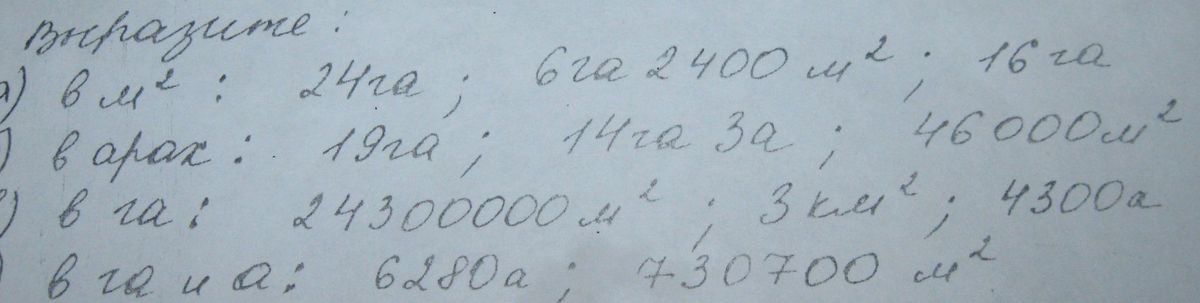 Выразите:
а) в м² : 24га ; 6га 2400 м² ; 16 га
) в арах : 19га ; 14га 3а ; 46000м²
в) в га : 24300000м² ; 3км² ; 4300а
) в га и а : 6280а ; 730700 м²